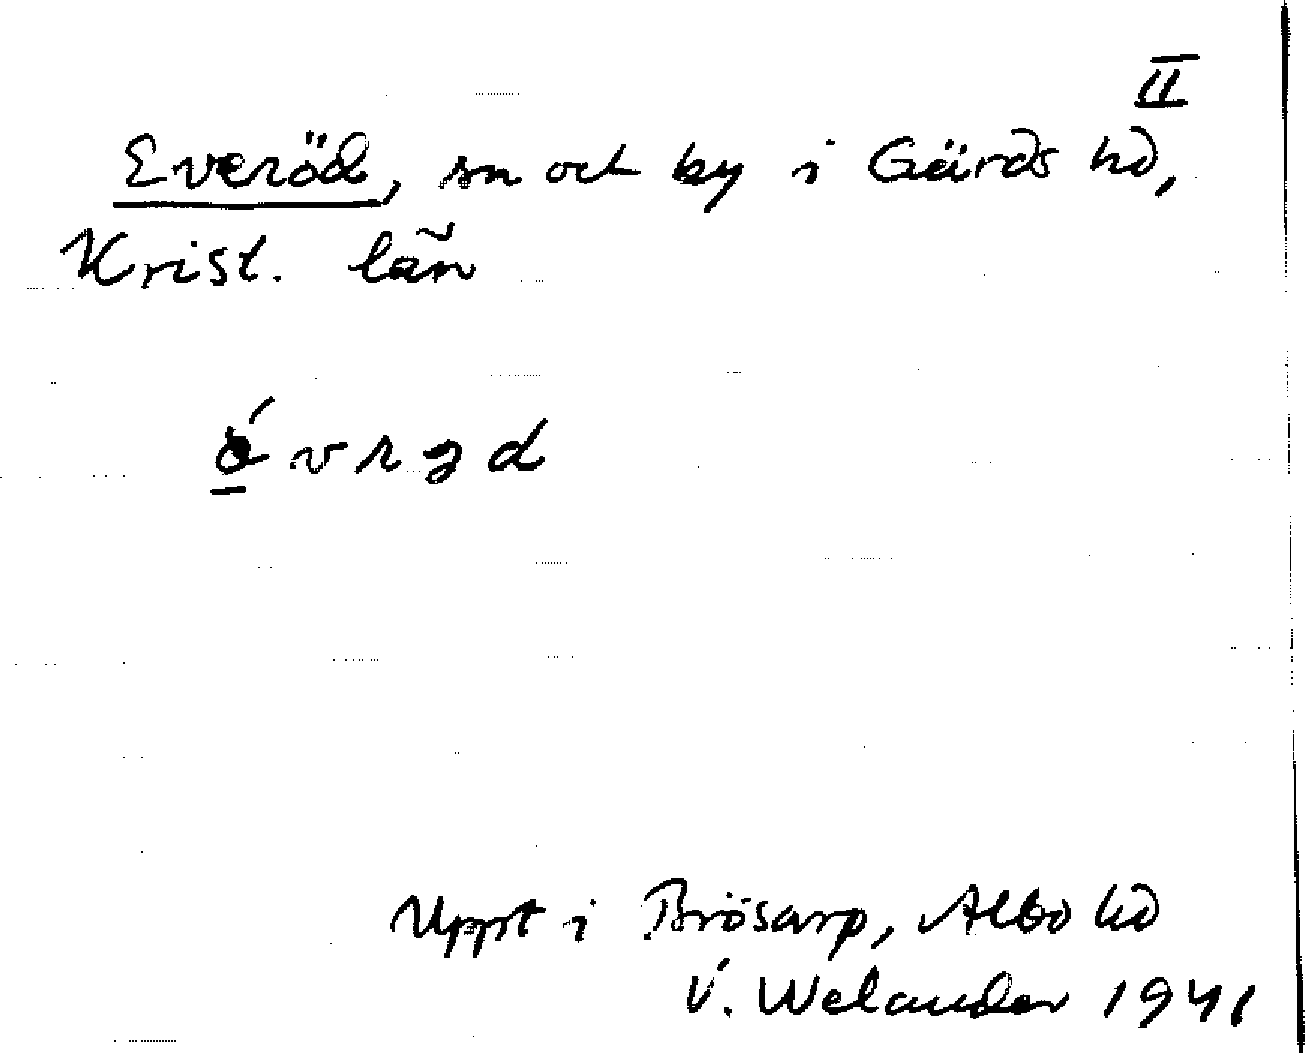 II
Everöd, sn och by i Gärds hd,
Krist. län
Uppt i Brösarp, Albo hd
V. Welander 1941